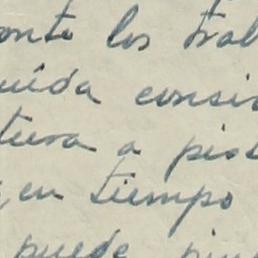 onto los trab
uida consid
tura a pist
, en tiempo
puede pin